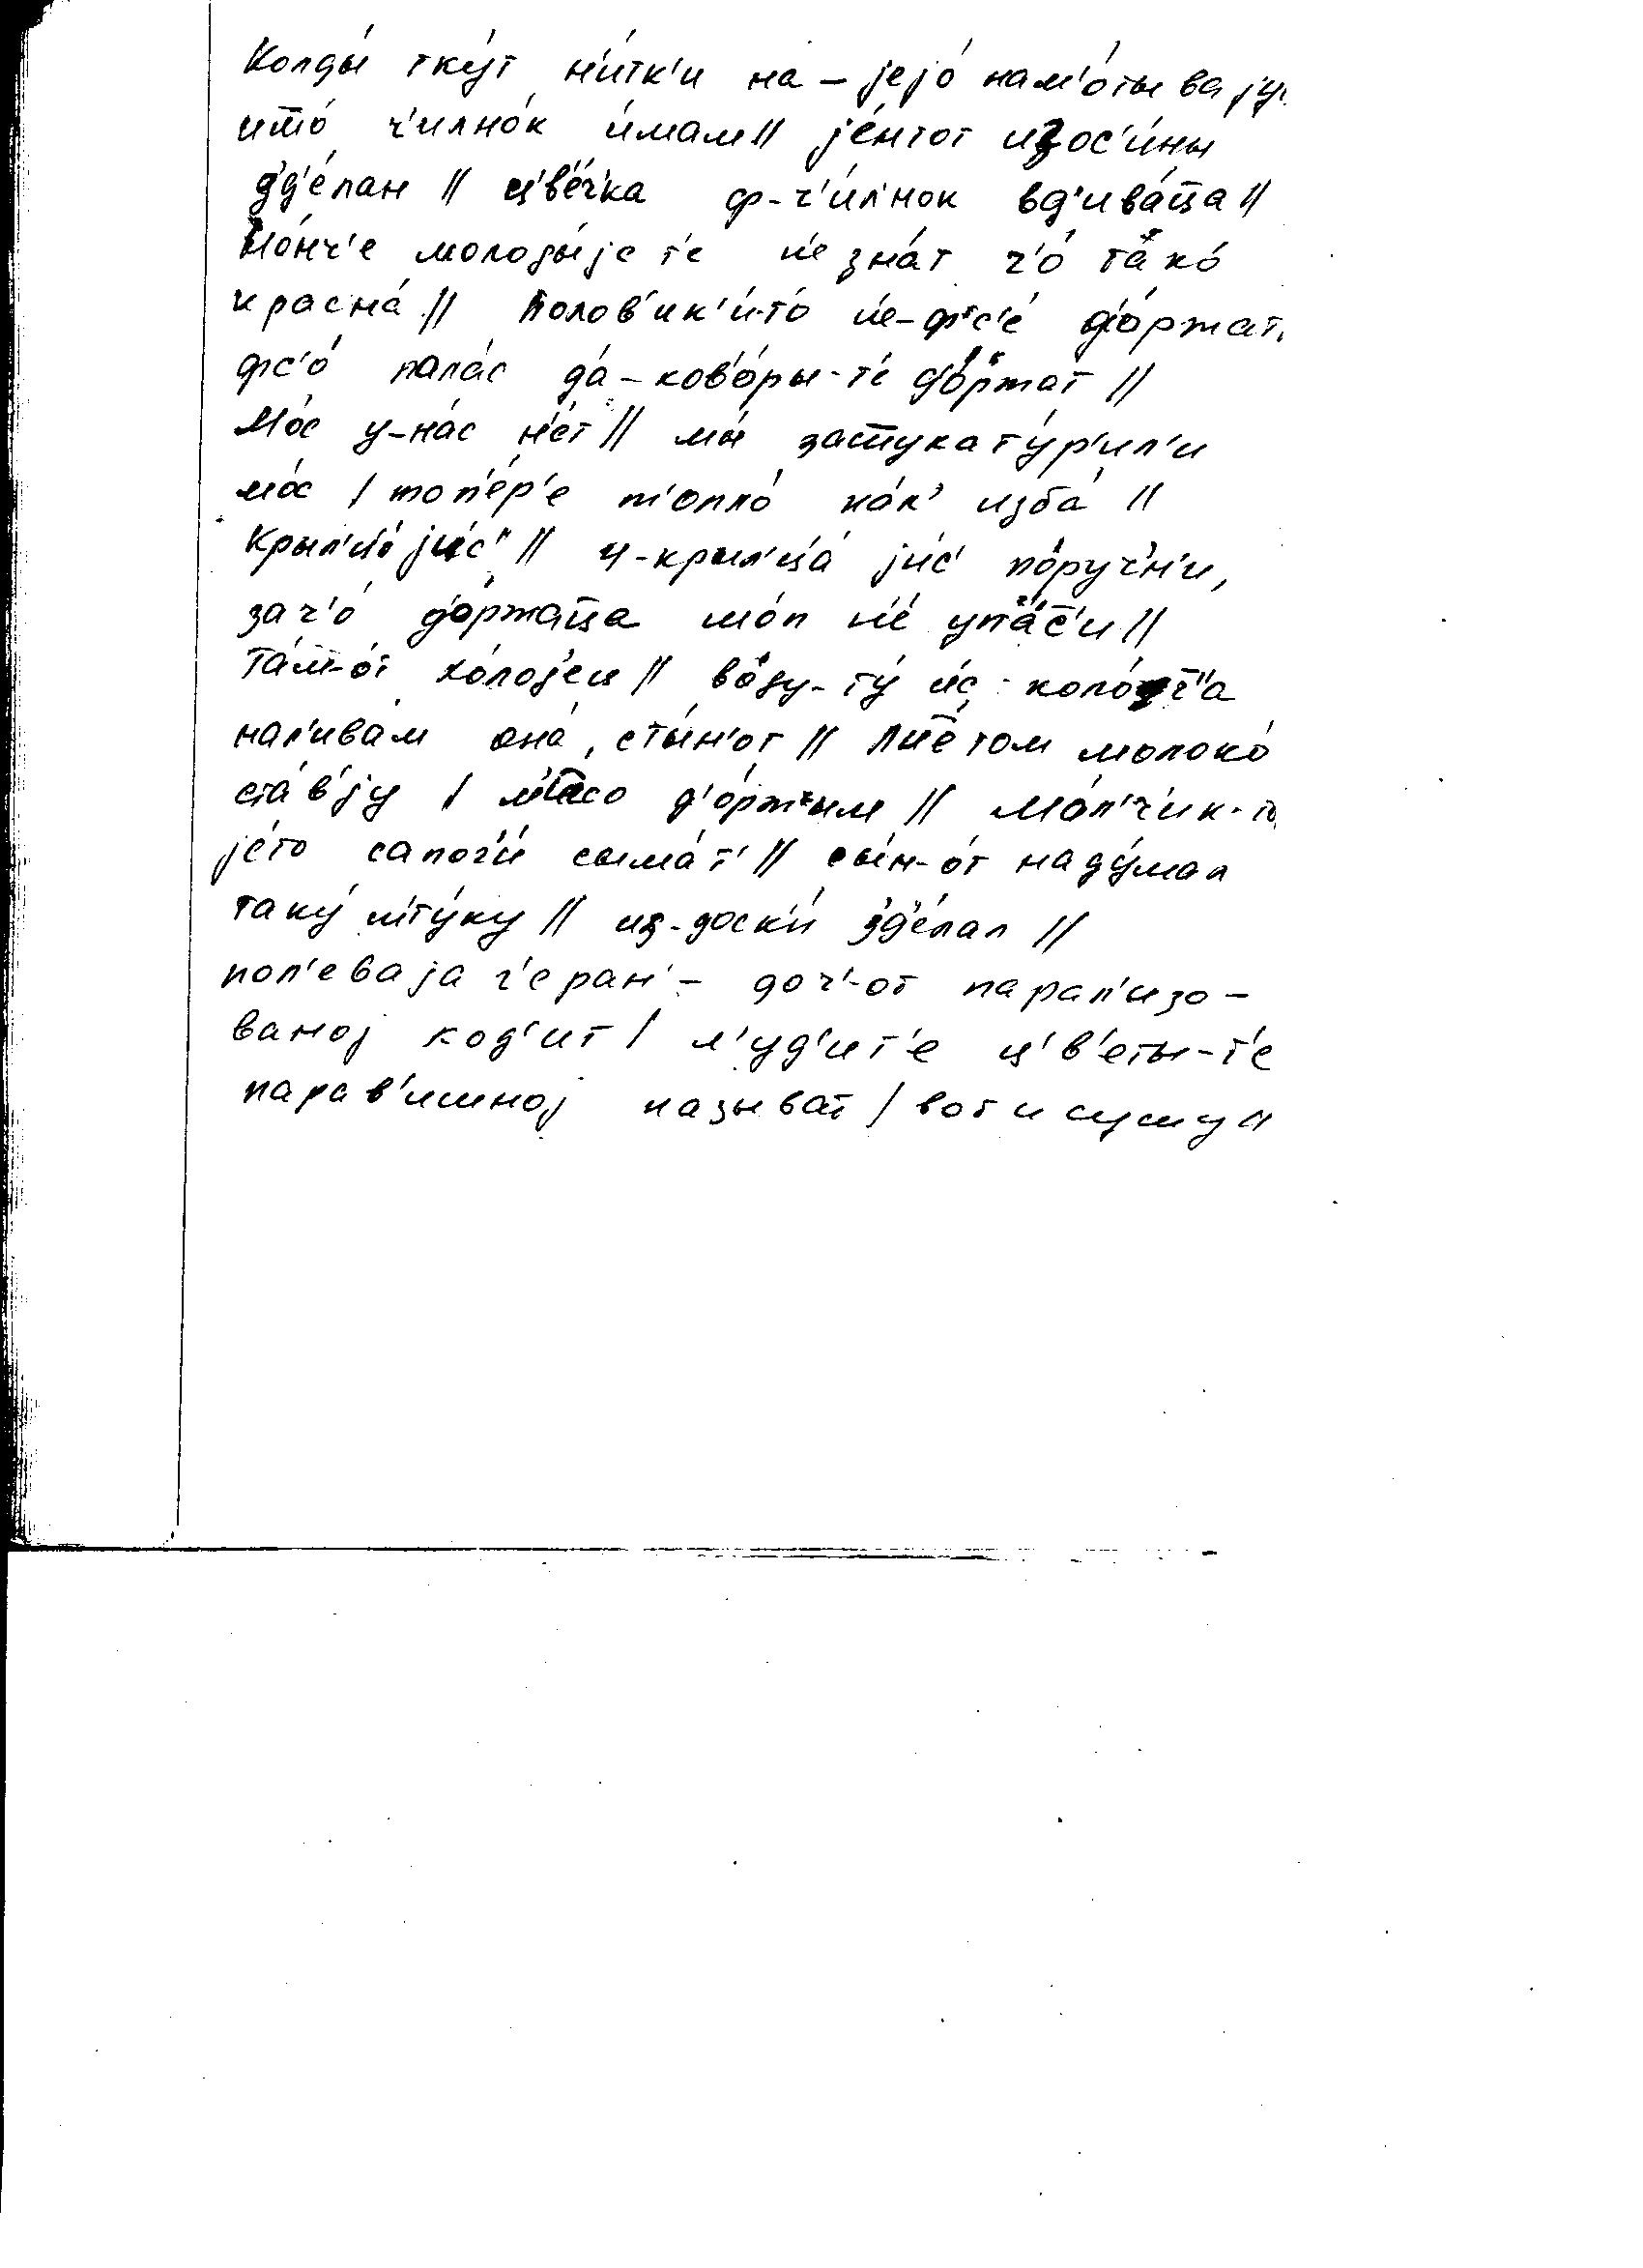 Колды́ тку́т н'и́тк'и на – јејо́ нам'о́тывају
што́ ч'илно́к и́мам // је́нтот изос'и́ны
з'д'е́лан // ц'в'е́чка ф-ч'и́л'нок вд'ива́ца //
но́нч'е молоды́је т'е н'е зна́т ч'о́ тако́
красна́ // полов'ик'и́-то́ н'е-фс'е́ д'о́ржат,
фс'о́ пала́с да́ – ков'о́ры-т'е д'о́ржат //
Мо́с у-на́с н'е́т // мы́ заштукату́р'ил'и
мо́с / топ'е́р'е т'опло́ ка́к изба́ //
Крыл'цо́ ји́с' // ч-крыл'ца́ ји́с' по́руч'н'и,
зач'о́ д'о́ржаца мо́п н'е́ упа́с'т'и //
Та́м-о́т коло́д'ец // во́ду-ту́ и́с коло́тч'а
нал'ива́м она́, сты́н'от // Лие́том молоко́
ста́в'ју / м'а́со д'о́ржым // Ма́л'ч'ик-то
је́то сапог'и́ сыма́т' // сы́н-о́т наду́мал
таку́ шту́ку // из-доск'и́ з'д'е́лал //
пол'еваја г'еран' – доч'-от парал'изо–
ваној код'ит / л'уд'и т'е ц'в'еты-т'е
парав'ишној называт / вот и сушу //